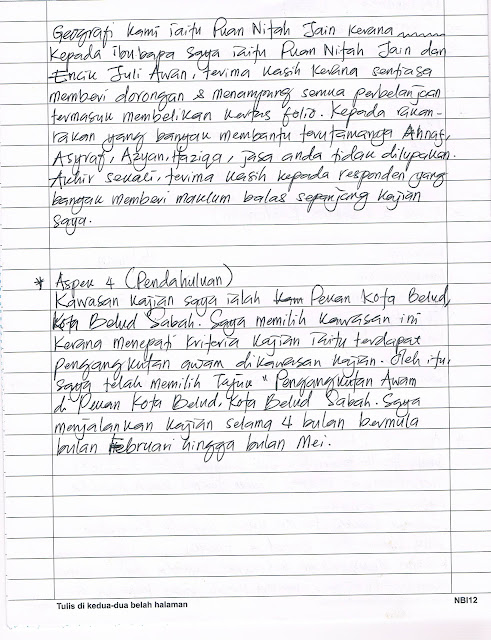 Geografi kami iaitu Puan Nitah Jain kerana
kepada ibubapa saya iaitu Puan Nitah Jain dan
Encik Juli Awan, terima kasih kerana sentiasa
memberi dorongan & menampung semua perbelanjaan
termasuk membelikan kertas folio. Kepada rakan-
rakan yang banyak membantu terutamanya Ahnaf,
Asyraf, Azyan, Haziqa, jasa anda tidak dilupakan.
Akhir sekali, terima kasih kepada responden yang
banyak memberi maklum balas sepanjang kajian
saya.
* Aspek 4 (Pendahuluan)
Kawasan kajian saya ialah Pekan Kota Belud,
Kota Belud Sabah. Saya memilih kawasan ini
kerana menepati kriteria kajian iaitu terdapat
pengangkutan awam dikawasan kajian. Oleh itu,
saya telah memilih Tajuk " Pengangkutan Awam
di Pekan Kota Belud, Kota Belud Sabah. Saya
menjalankan kajian selama 4 bulan bermula
bulan Februari hingga bulan Mei.
Tulis di kedua-dua belah halaman
NBI12